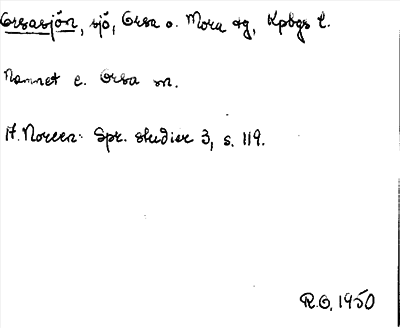 Orsasjön, sjö, Orsa o. Mora tg, Kpbgs l.
Namnet e. Orsa sn.
A. Noreen: Spr. studier 3, s. 119.
R.O. 1950